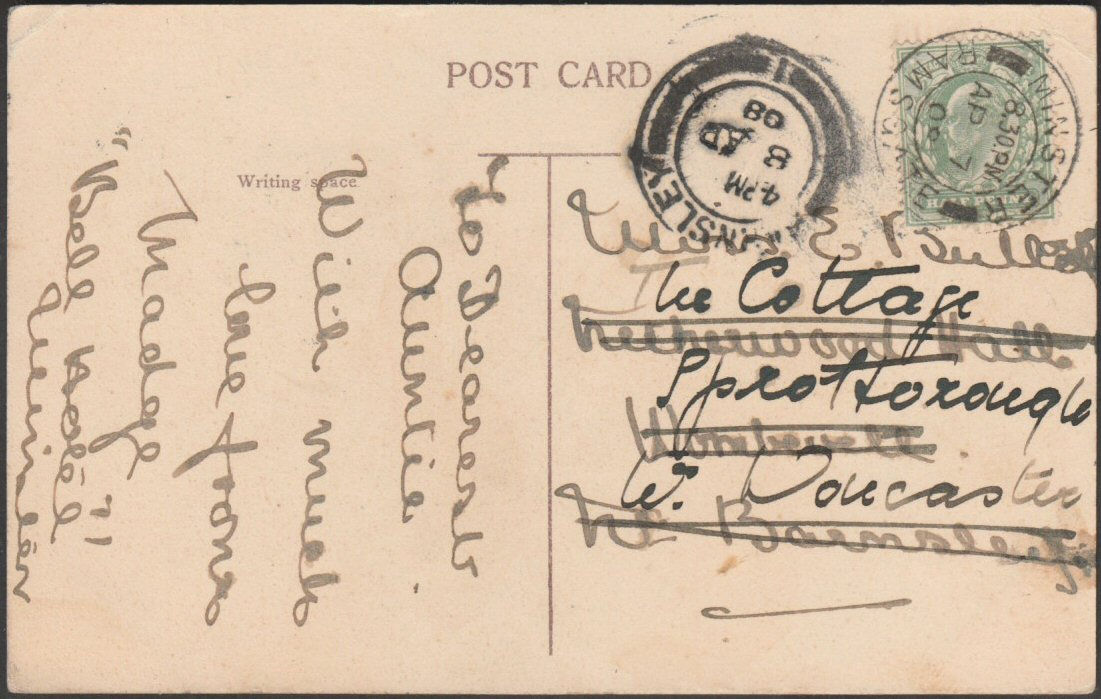 POST CARD
Writing space
To Dearest
Auntie
With much
love from
Madge
"Bell Hotel"
MINSTER
RAMSGATE
8.30PM
AP 7
08
HALF PENNY
4 PM
8
AP
08
E.
The Cottage
Sprotborough
Nr. Doncaster
Netherwood Hall
Wombwell
Nr Barnsley